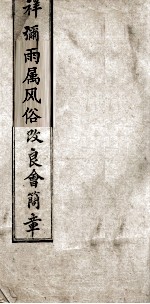 祥彌雨属风俗改良會簡章